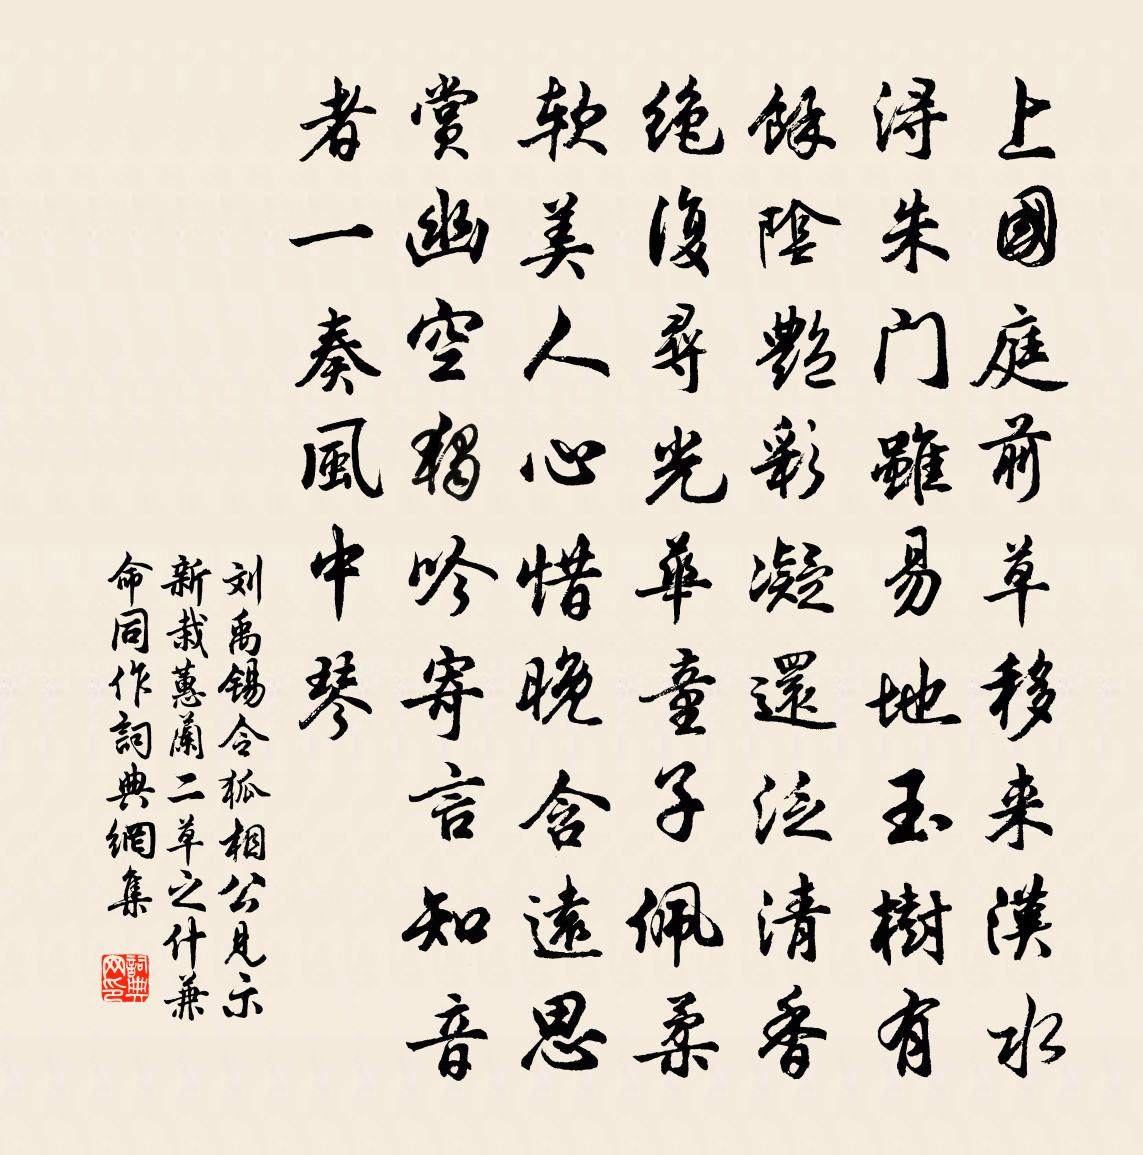 上國庭前草移来漢水
潯朱门雖易地玉樹有
餘陰艷彩凝還泛清香
绝復尋光華童子佩柔
软美人心惜晚含遠思
賞幽空獨吟寄言知音
者一奏風中琴
刘禹锡令狐相公見示
新栽蕙蘭二草之什兼
命同作詞典網集
詞典网印